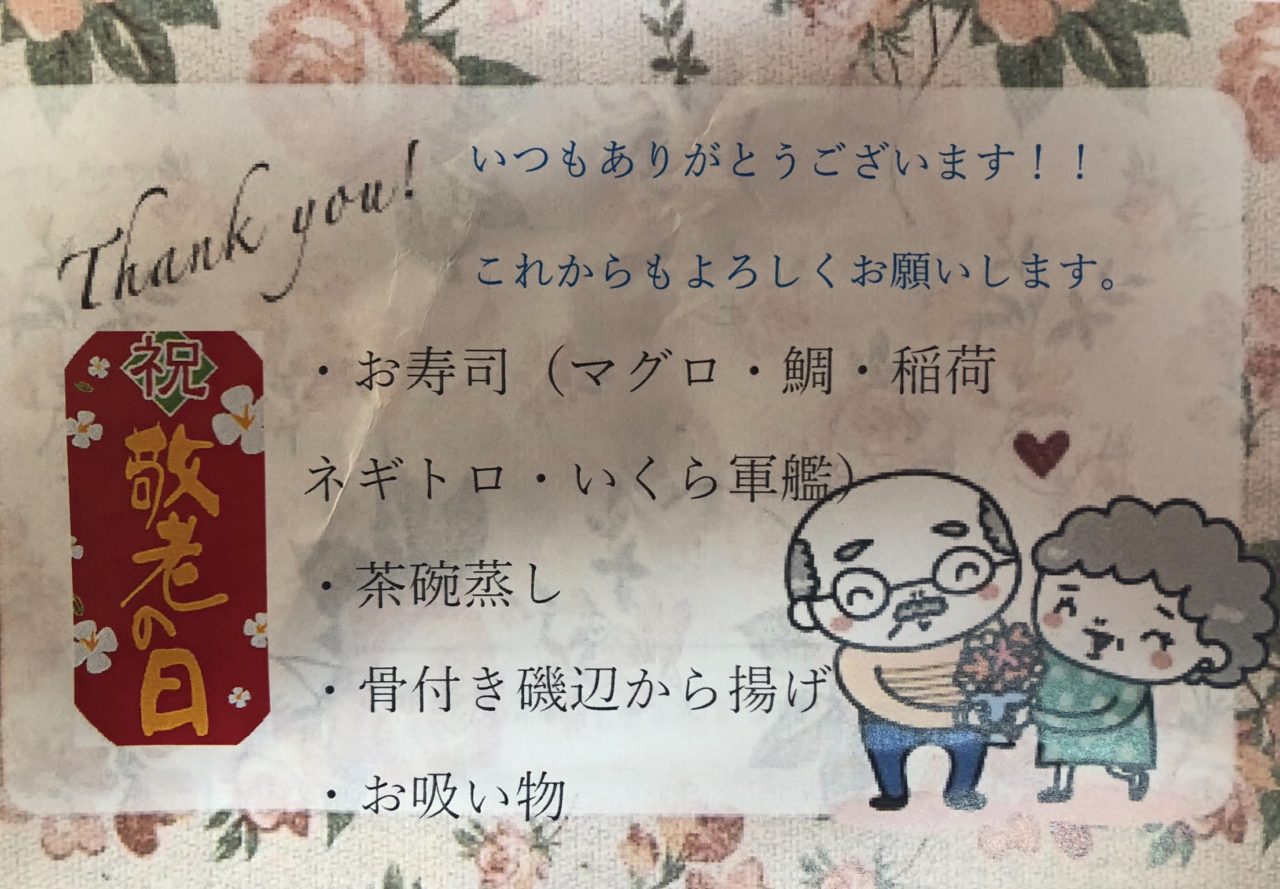 Thank you!
いつもありがとうございます！！
これからもよろしくお願いします。
祝
敬老の日
・お寿司（マグロ・鯛・稲荷
ネギトロ・いくら軍艦）
・茶碗蒸し
・骨付き磯辺から揚げ
・お吸い物